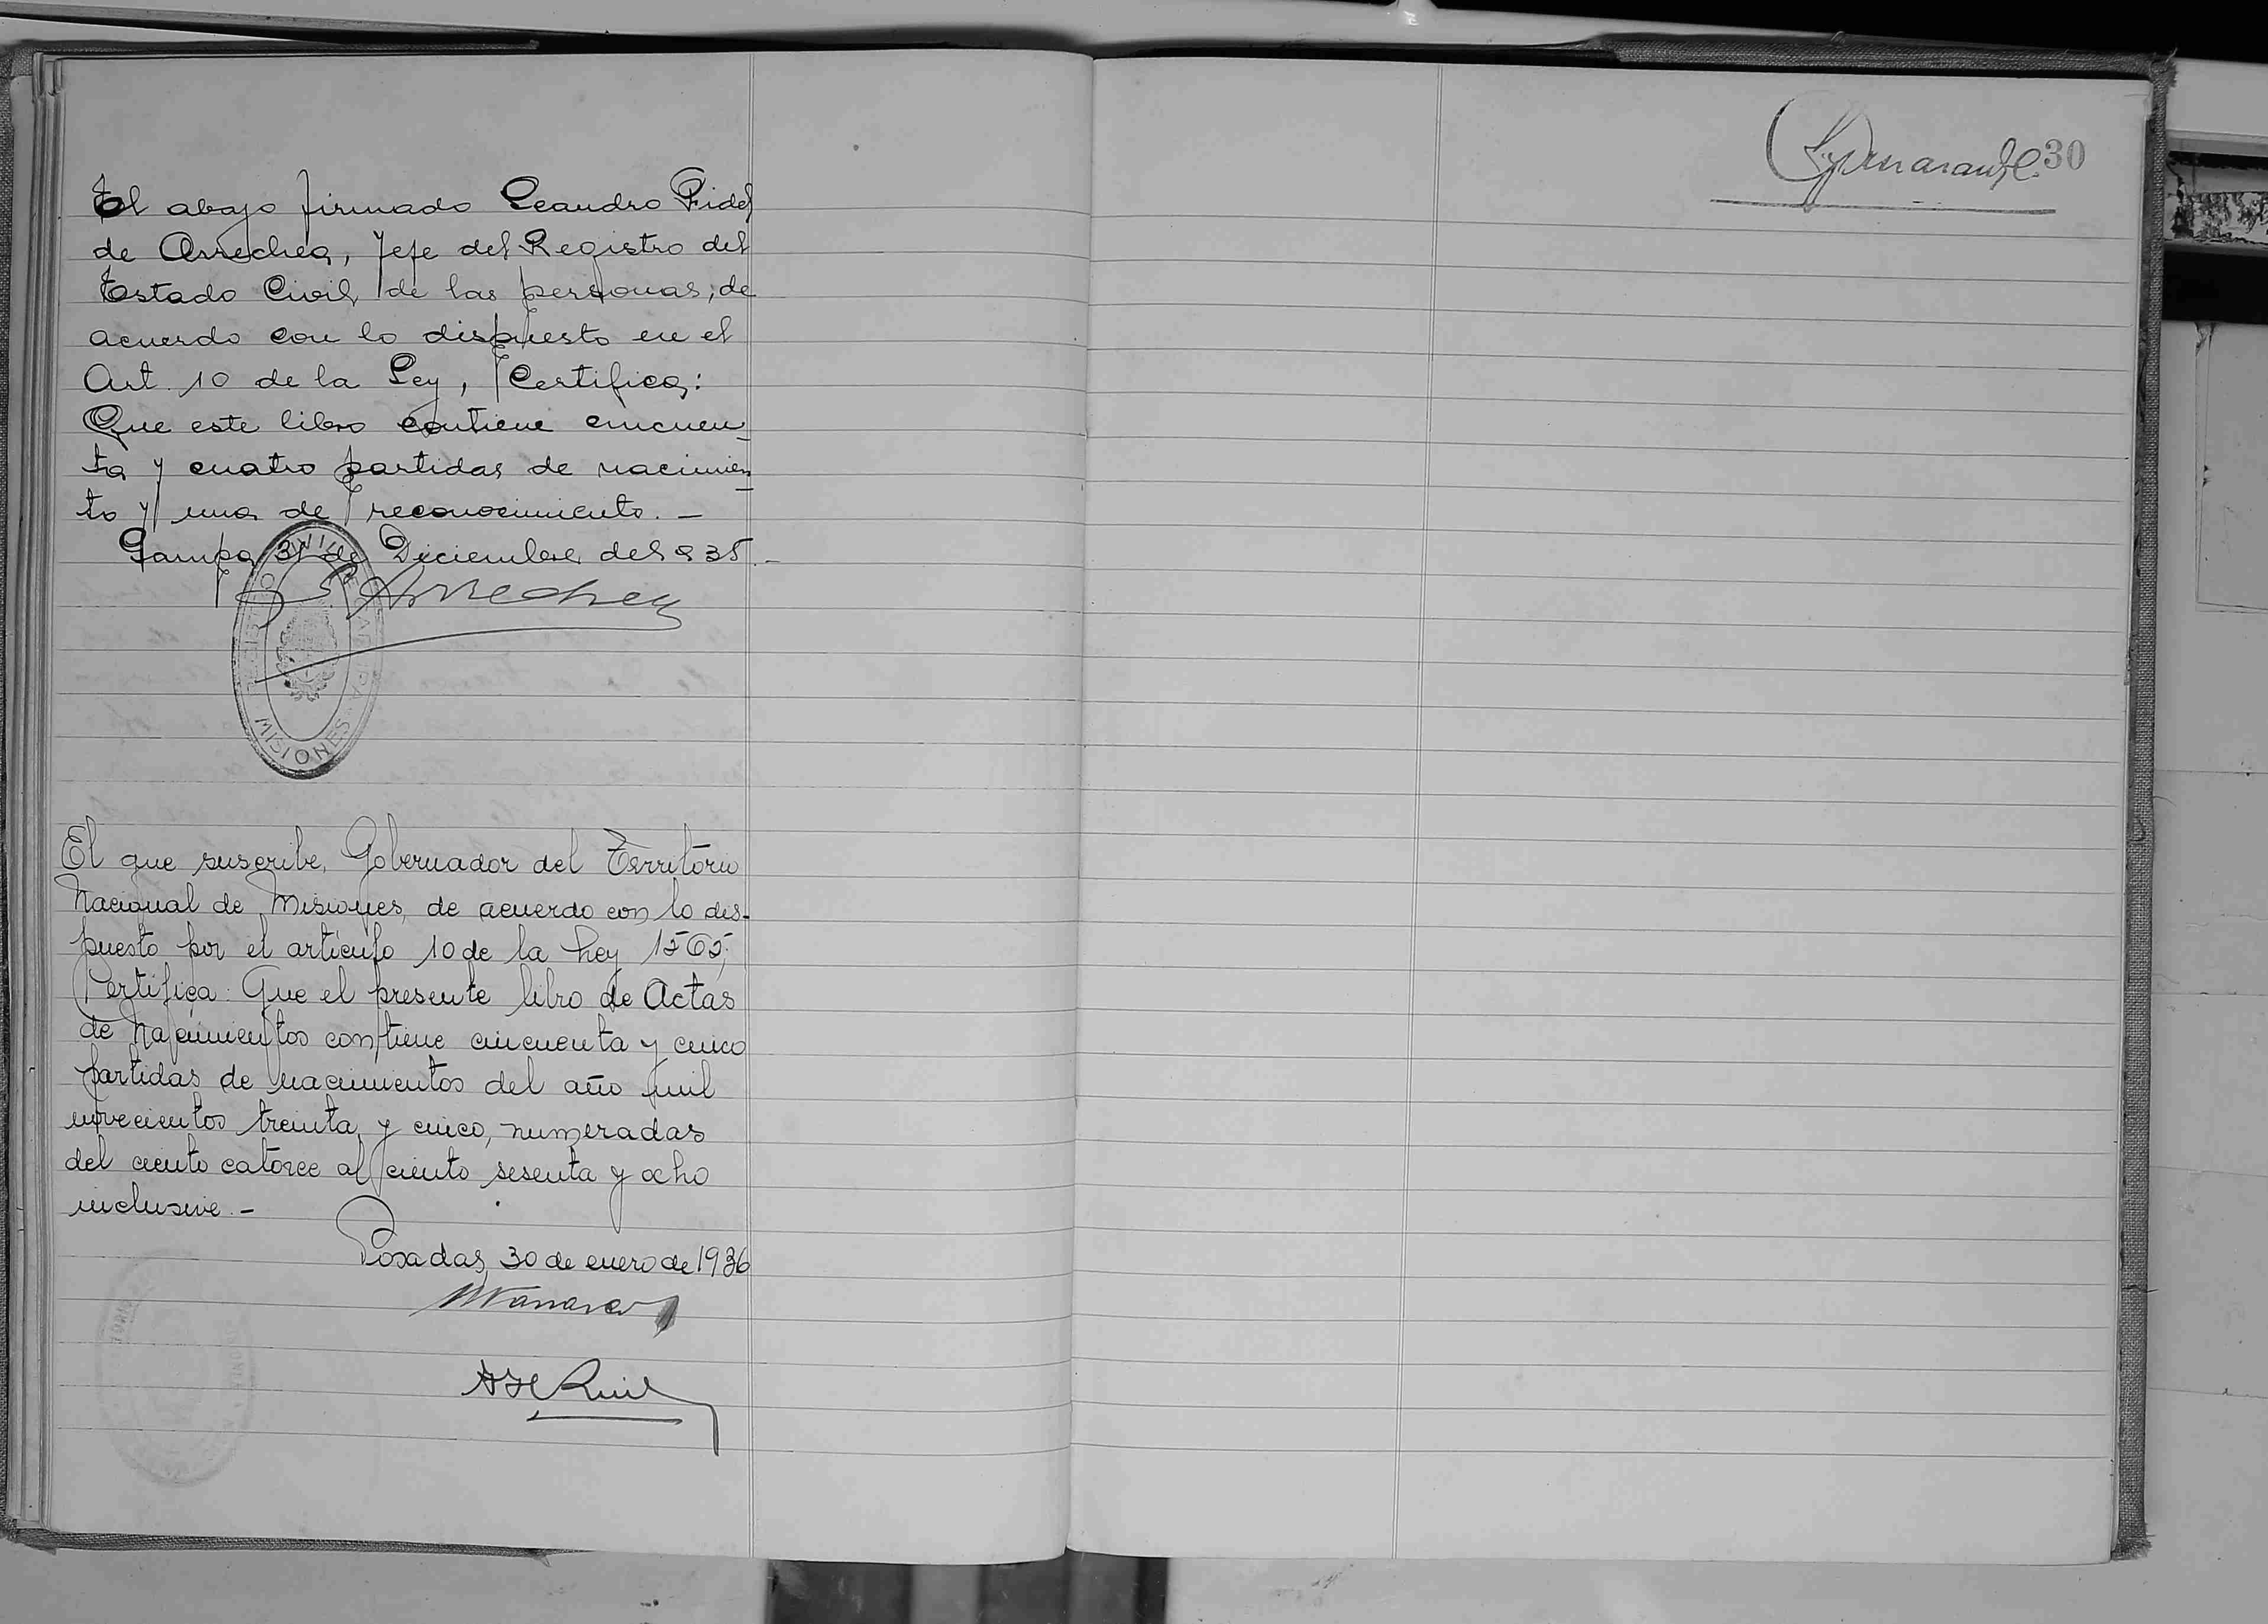 El abajo firmado Leandro Fidel
de Arrechea, Jefe del Registro del
Estado Civil de las personas, de
acuerdo con lo dispuesto en el
Art. 10 de la Ley, Certifica:
Que este libro contiene cincuen-
ta y cuatro partidas de nacimien-
to y una de reconocimiento. -
Pampa 31 de Diciembre del 935.-
Arrechea
REGISTRO CIVIL
MISIONES
El que suscribe, Gobernador del Territorio
Nacional de Misiones, de acuerdo con lo dis-
puesto por el artículo 10 de la Ley 1565;
Certifica: Que el presente libro de Actas
de Nacimientos contiene cincuenta y cinco
partidas de nacimientos del año mil
novecientos treinta y cinco, numeradas
del ciento catorce al ciento sesenta y ocho
inclusive. -
Posadas, 30 de enero de 1936
30